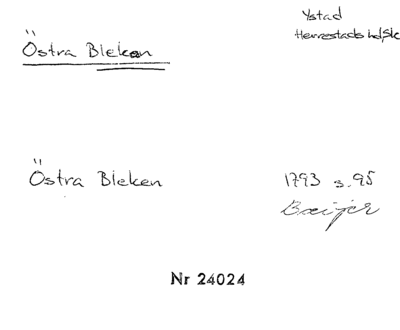 Ystad
Östra Bleken
Herrestads hd, Sk
Östra Bleken
1793 s. 95
Baeijer
Nr 24024